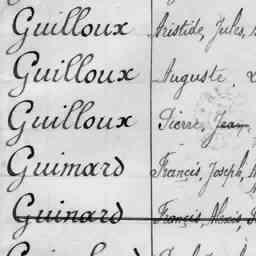 Guilloux Aristide, Jules,
Guilloux Auguste
Guilloux Pierre, Jean
Guimard Francis, Joseph,
Guinard Francis, Alexis